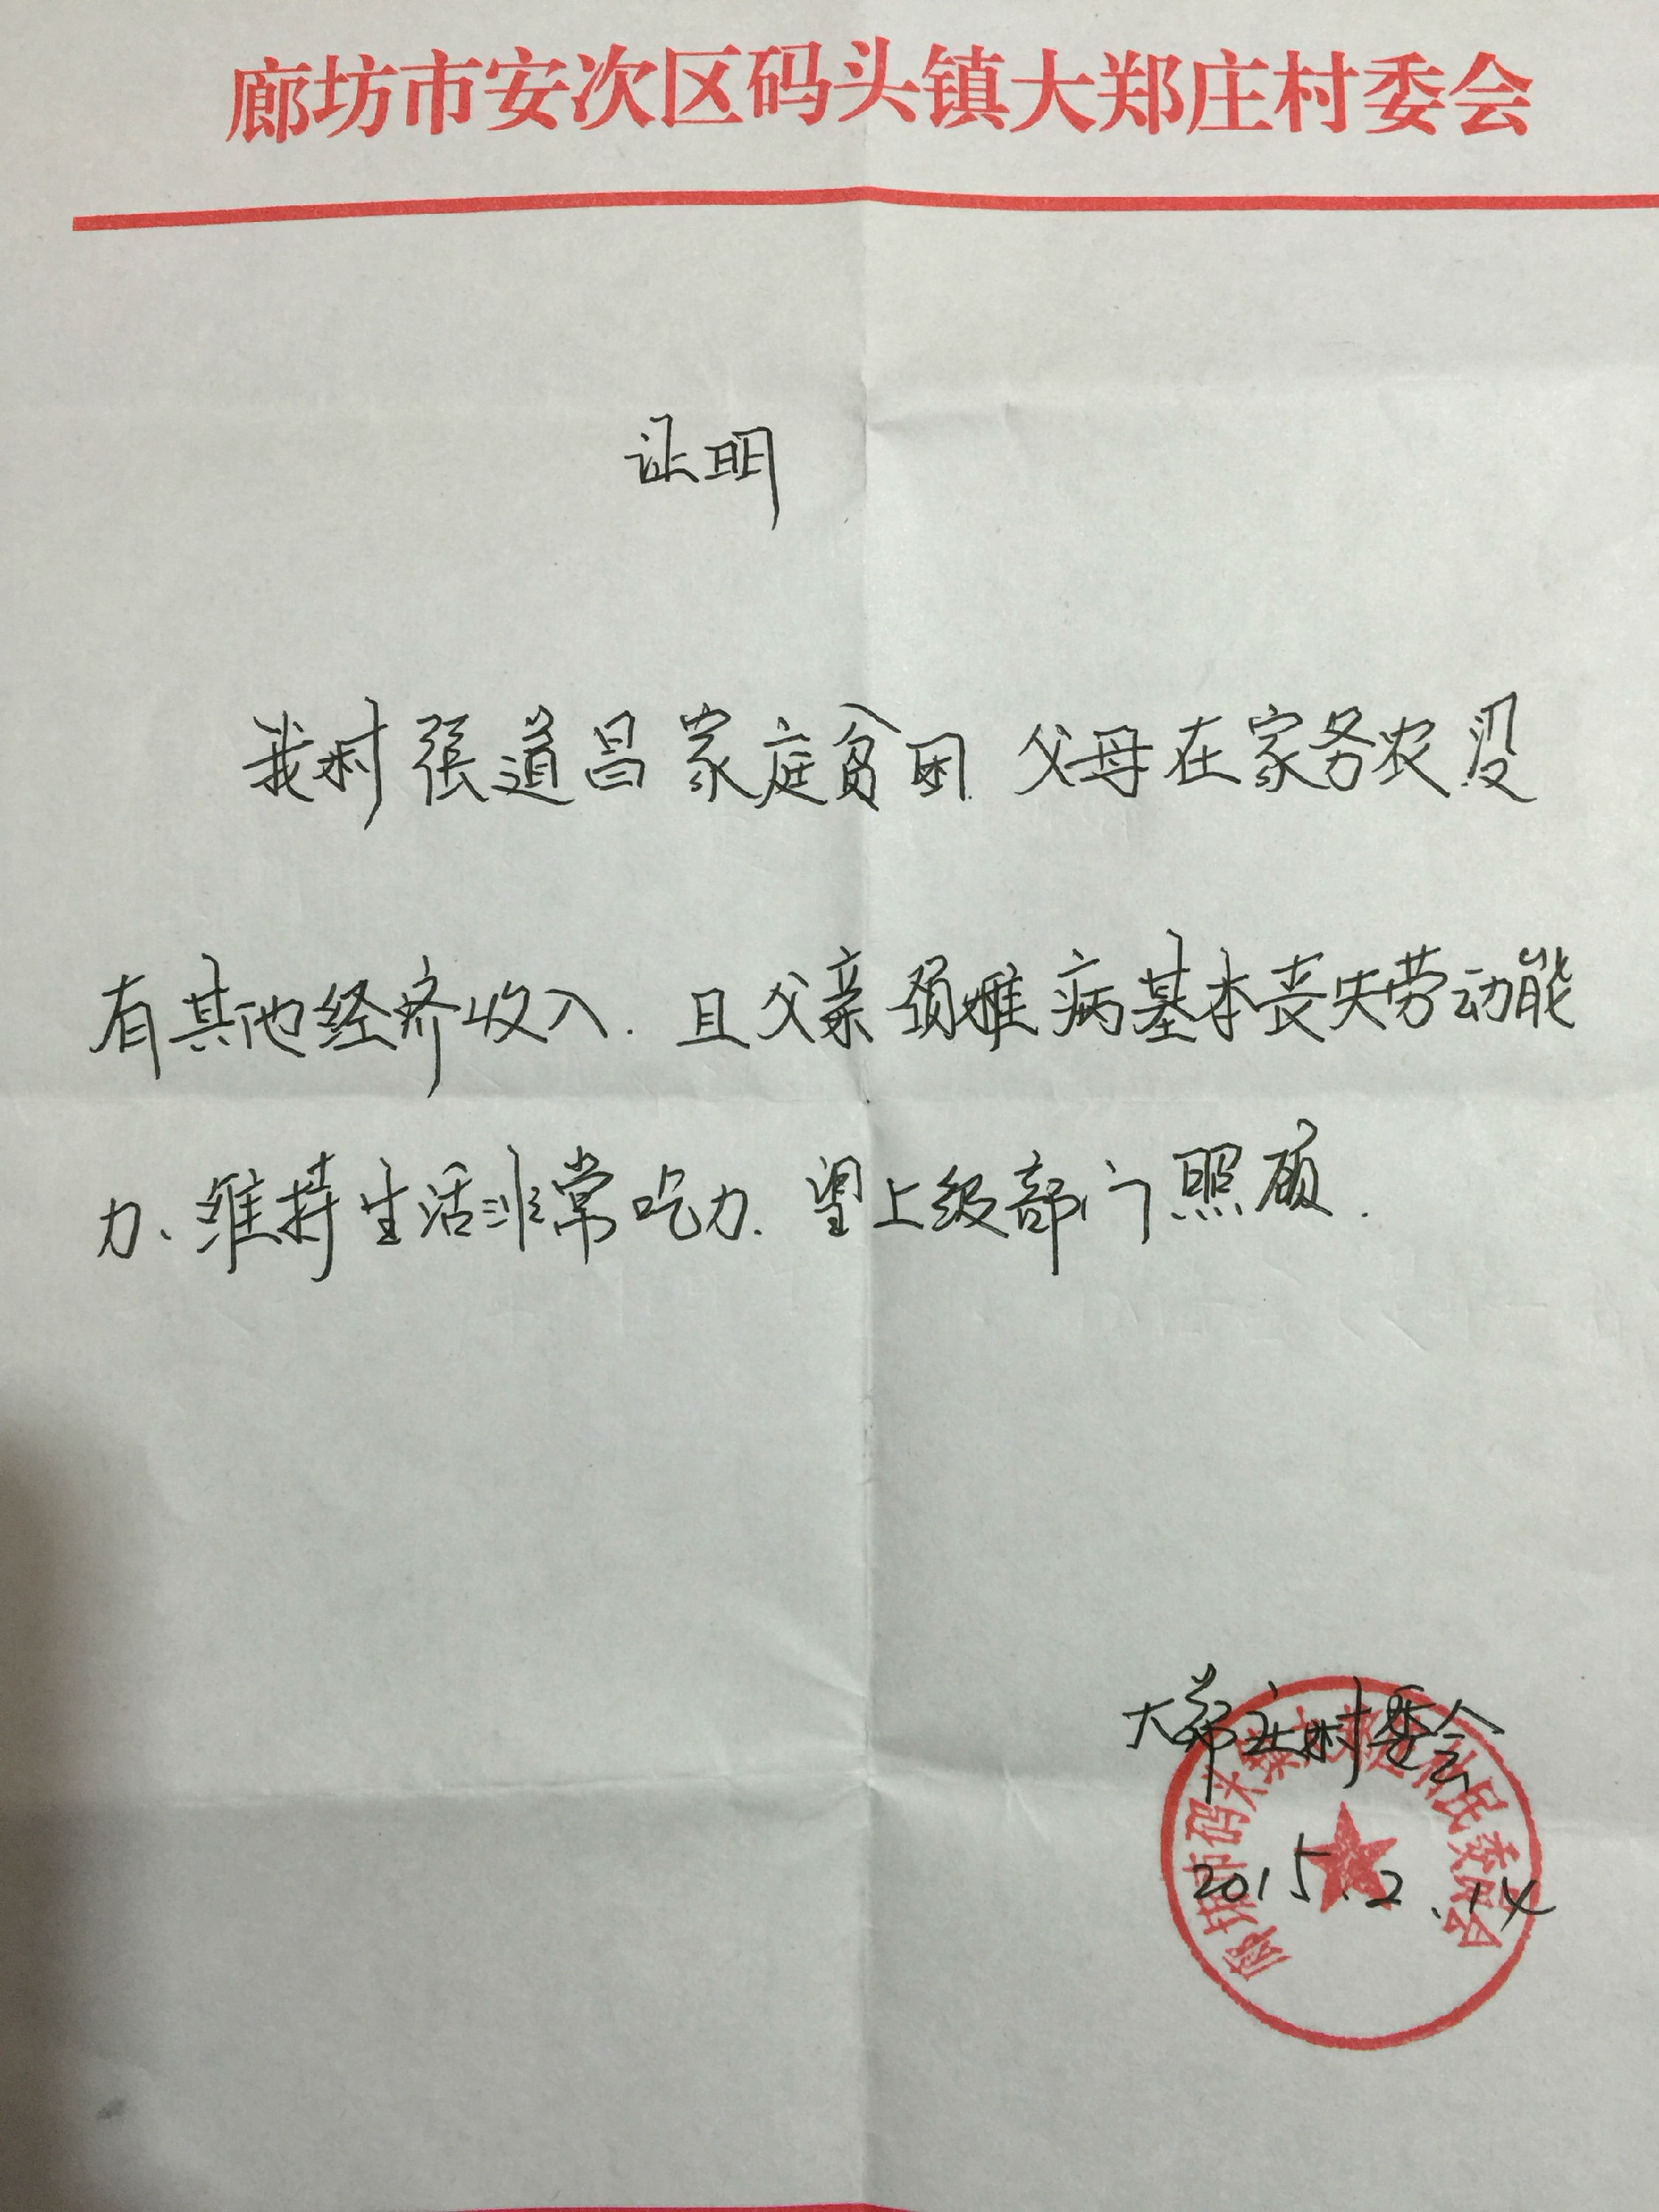 廊坊市安次区码头镇大郑庄村委会
证明
我村张道昌家庭贫困 父母在家务农没
有其他经济收入. 且父亲颈椎病基本丧失劳动能
力、维持生活非常吃力. 望上级部门照顾.
大郑庄村委会
2015.2.14
廊坊市码头镇大郑庄村民委员会